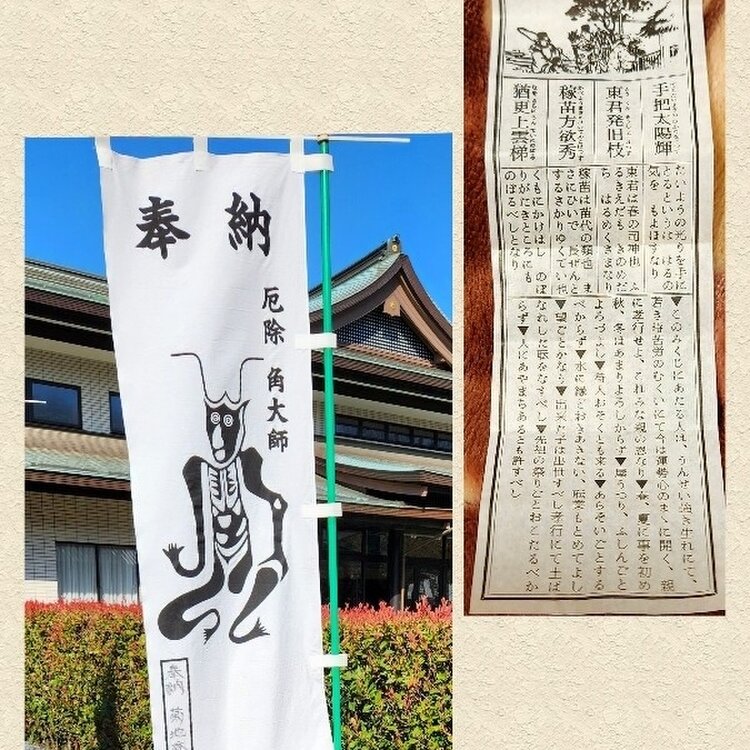 奉納
厄除 角大師
奉納
手把太陽輝
東君発旧枝
稼苗方欲秀
猶更上雲梯
たいようの光りを手に
とるというは はるの
気を もよほすなり
東君は春の司神也 ふ
るきえだも きのめだ
ち はるめくさまなり
稼苗は苗代の類也 ま
さにひいで 長ぜんと
するさかりゆくてい也
くもにかけはし のぼ
りがたきところにも
のぼるべしとなり
▼このみくじにあたる人は、うんせい強き生れにて、
若き時苦労のむくいにて今は運勢心のまゝに開く、親
に孝行せよ、これみな親の恩なり▼春、夏に事を初め
秋、冬はあまりよろしからず▼屋うつり、ふしんごと
よろづよし▼待人おそくとも来る▼あらそいごとする
べからず▼水に縁どおきあきない、職業もとめてよし
▼望ごとかなう▼出来た子は出世すべし孝行にて土ば
なれした事をなすべし▼先祖の祭りごとおこたるべか
らず▼人にあやまちあるとも許すべし